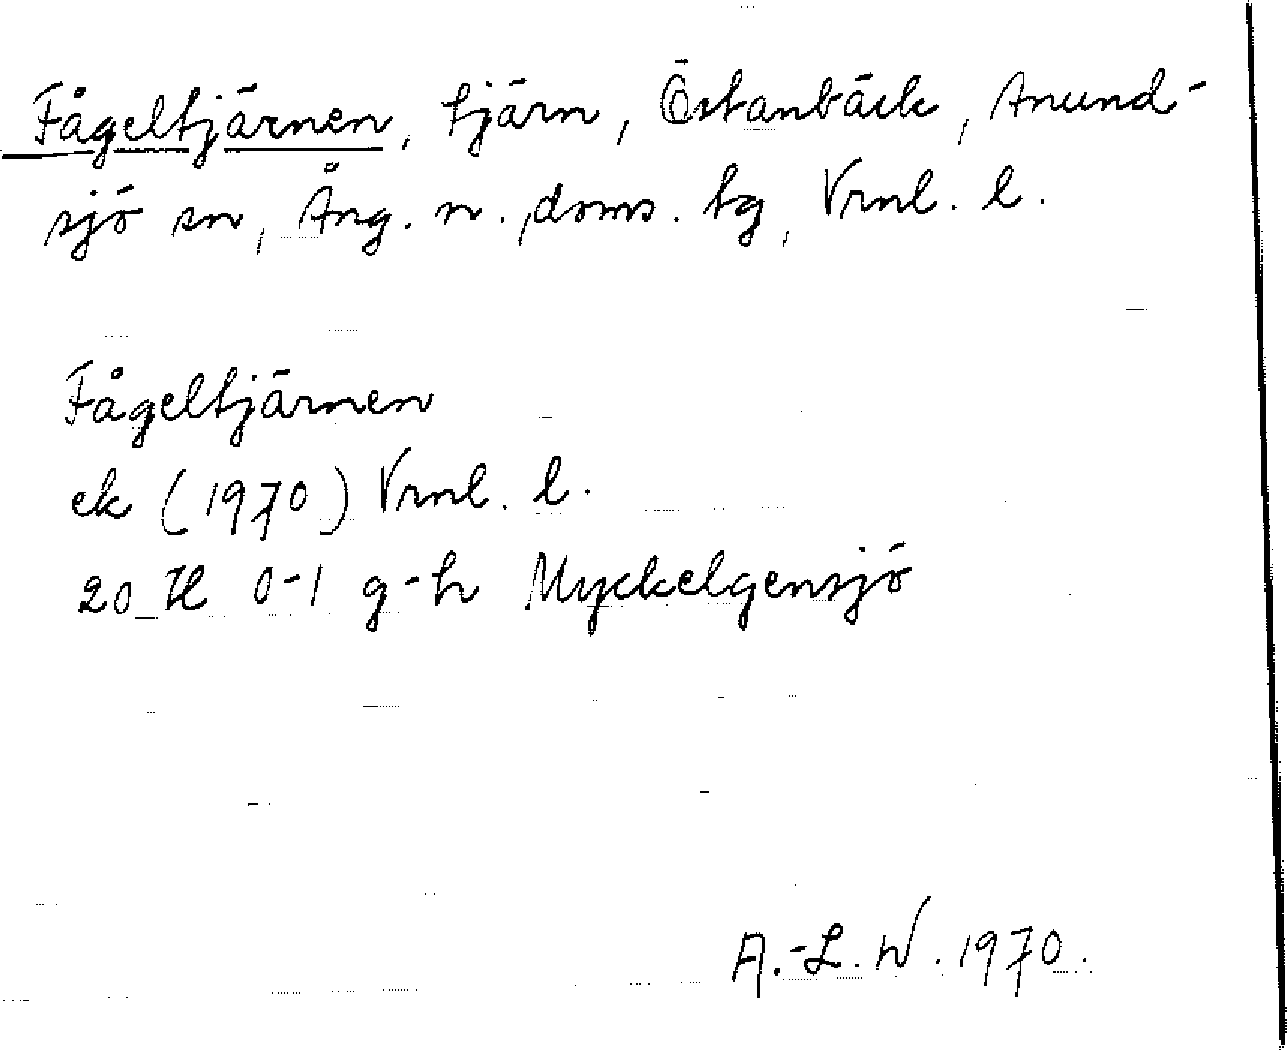 Fågeltjärnen, tjärn, Östanbäck, Anund-
sjö sn, Ång. n. doms. tg, Vrnl. l.
Fågeltjärnen
ek (1970) Vrnl. l.
20 H 0-1 g-h Myckelgensjö
A.-L. W. 1970.